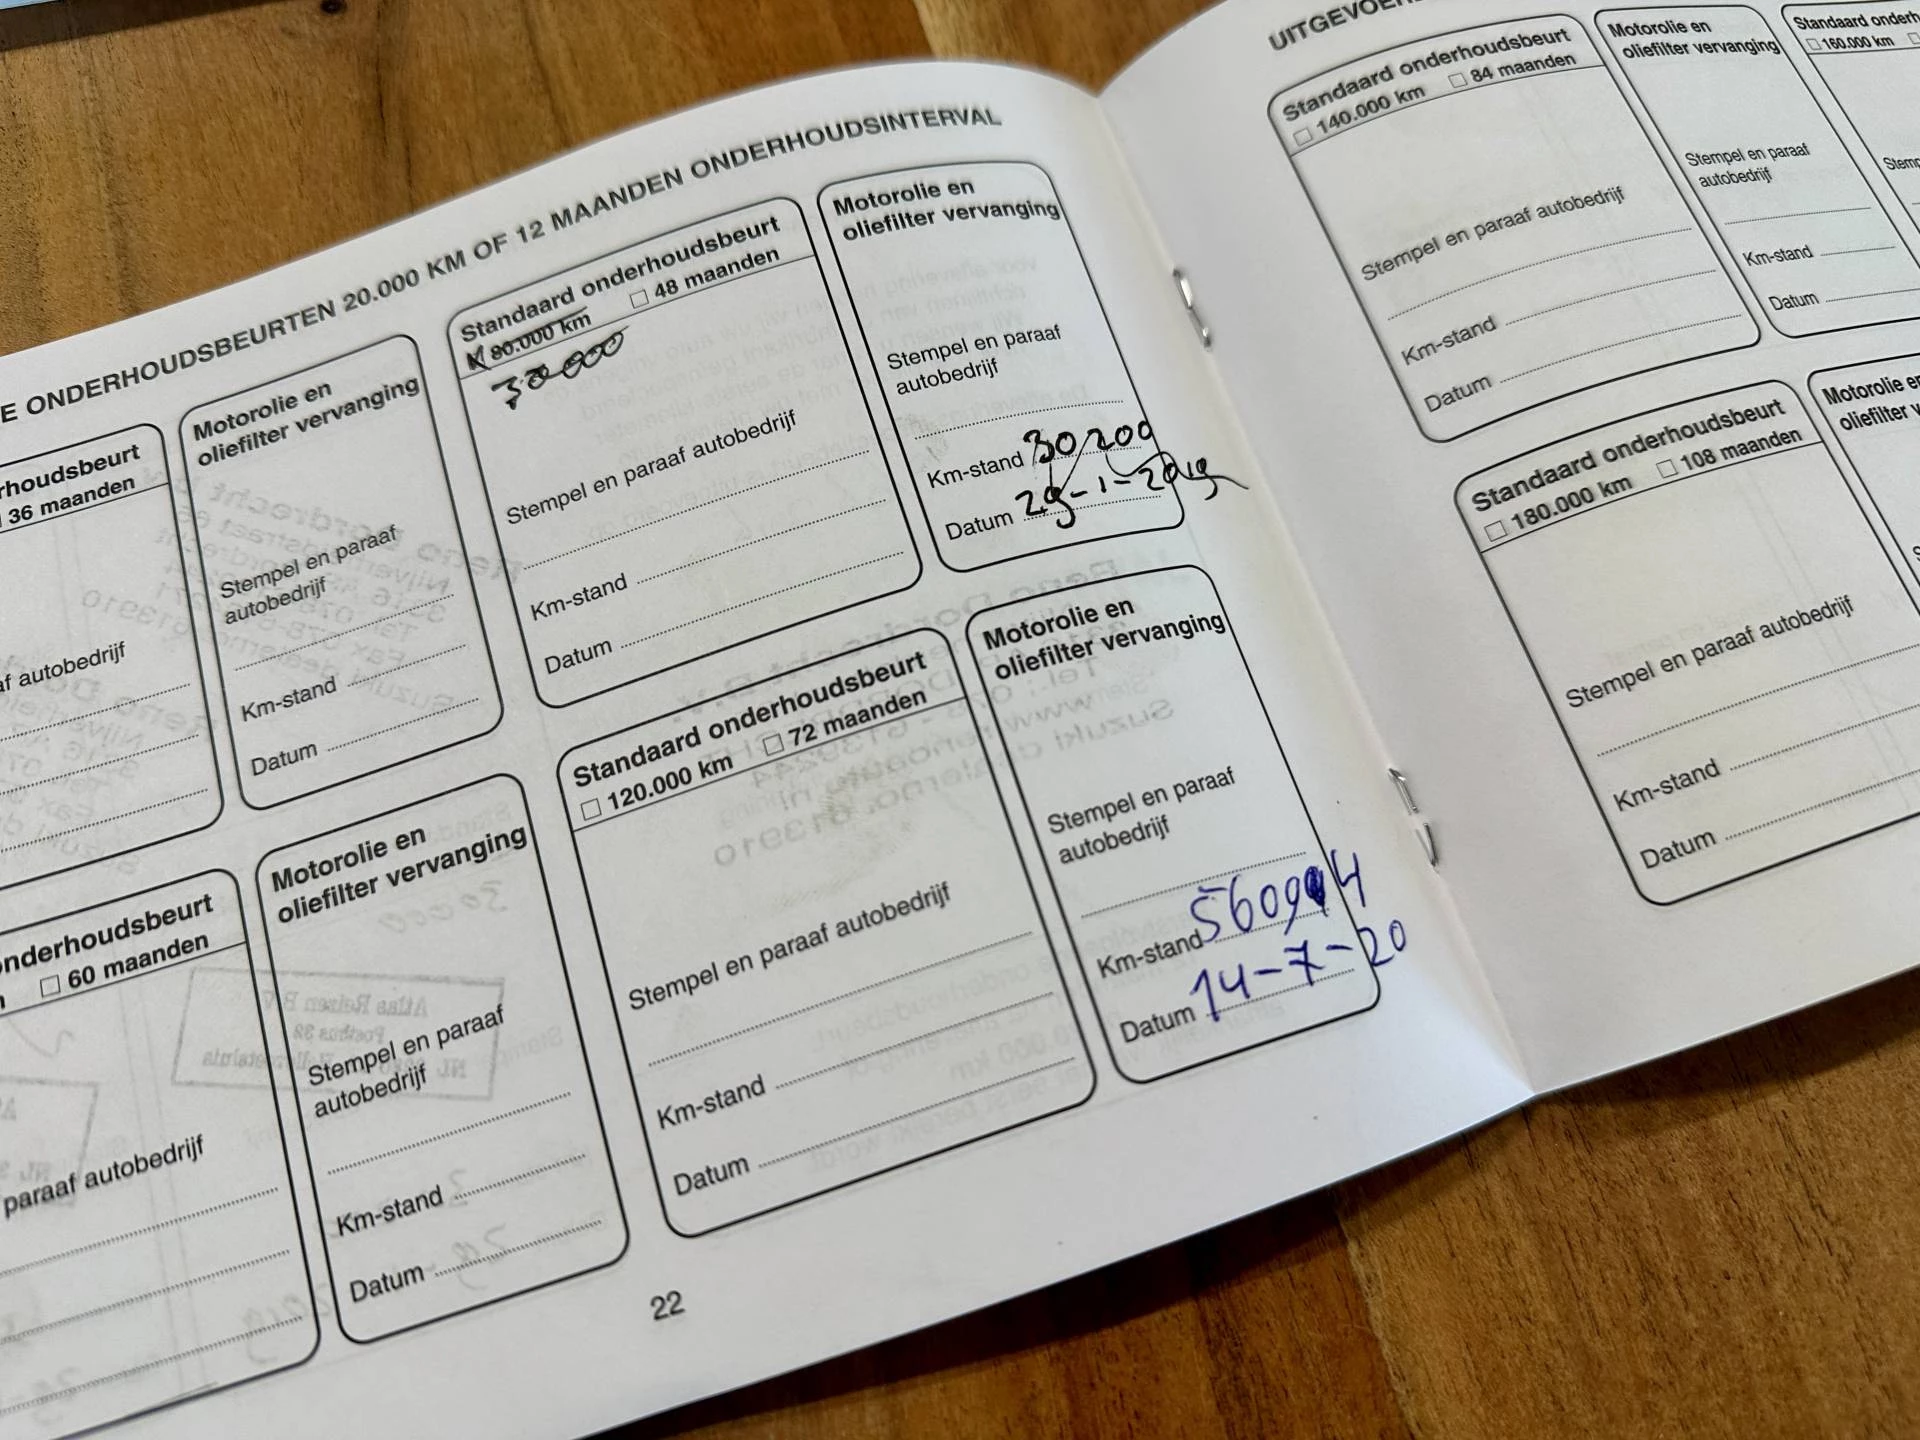 E ONDERHOUDSBEURTEN 20.000 KM OF 12 MAANDEN ONDERHOUDSINTERVAL
rhoudsbeurt
36 maanden
af autobedrijf
Motorolie en
oliefilter vervanging
Stempel en paraaf
autobedrijf
Km-stand
Datum
Standaard onderhoudsbeurt
80.000 km 48 maanden
30000
Stempel en paraaf autobedrijf
Km-stand
Datum
Motorolie en
oliefilter vervanging
Stempel en paraaf
autobedrijf
Km-stand 30200
Datum 29-1-2019
onderhoudsbeurt
60 maanden
paraaf autobedrijf
Motorolie en
oliefilter vervanging
Stempel en paraaf
autobedrijf
Km-stand
Datum
Standaard onderhoudsbeurt
120.000 km 72 maanden
Stempel en paraaf autobedrijf
Km-stand
Datum
Motorolie en
oliefilter vervanging
Stempel en paraaf
autobedrijf
Km-stand
Datum 14-7-20
22
UITGEVOER
Standaard onderhoudsbeurt
140.000 km 84 maanden
Stempel en paraaf autobedrijf
Km-stand
Datum
Motorolie en
oliefilter vervanging
Stempel en paraaf
autobedrijf
Km-stand
Datum
Standaard onderh
160.000 km
Stemp
Standaard onderhoudsbeurt
180.000 km 108 maanden
Stempel en paraaf autobedrijf
Km-stand
Datum
Motorolie en
oliefilter v